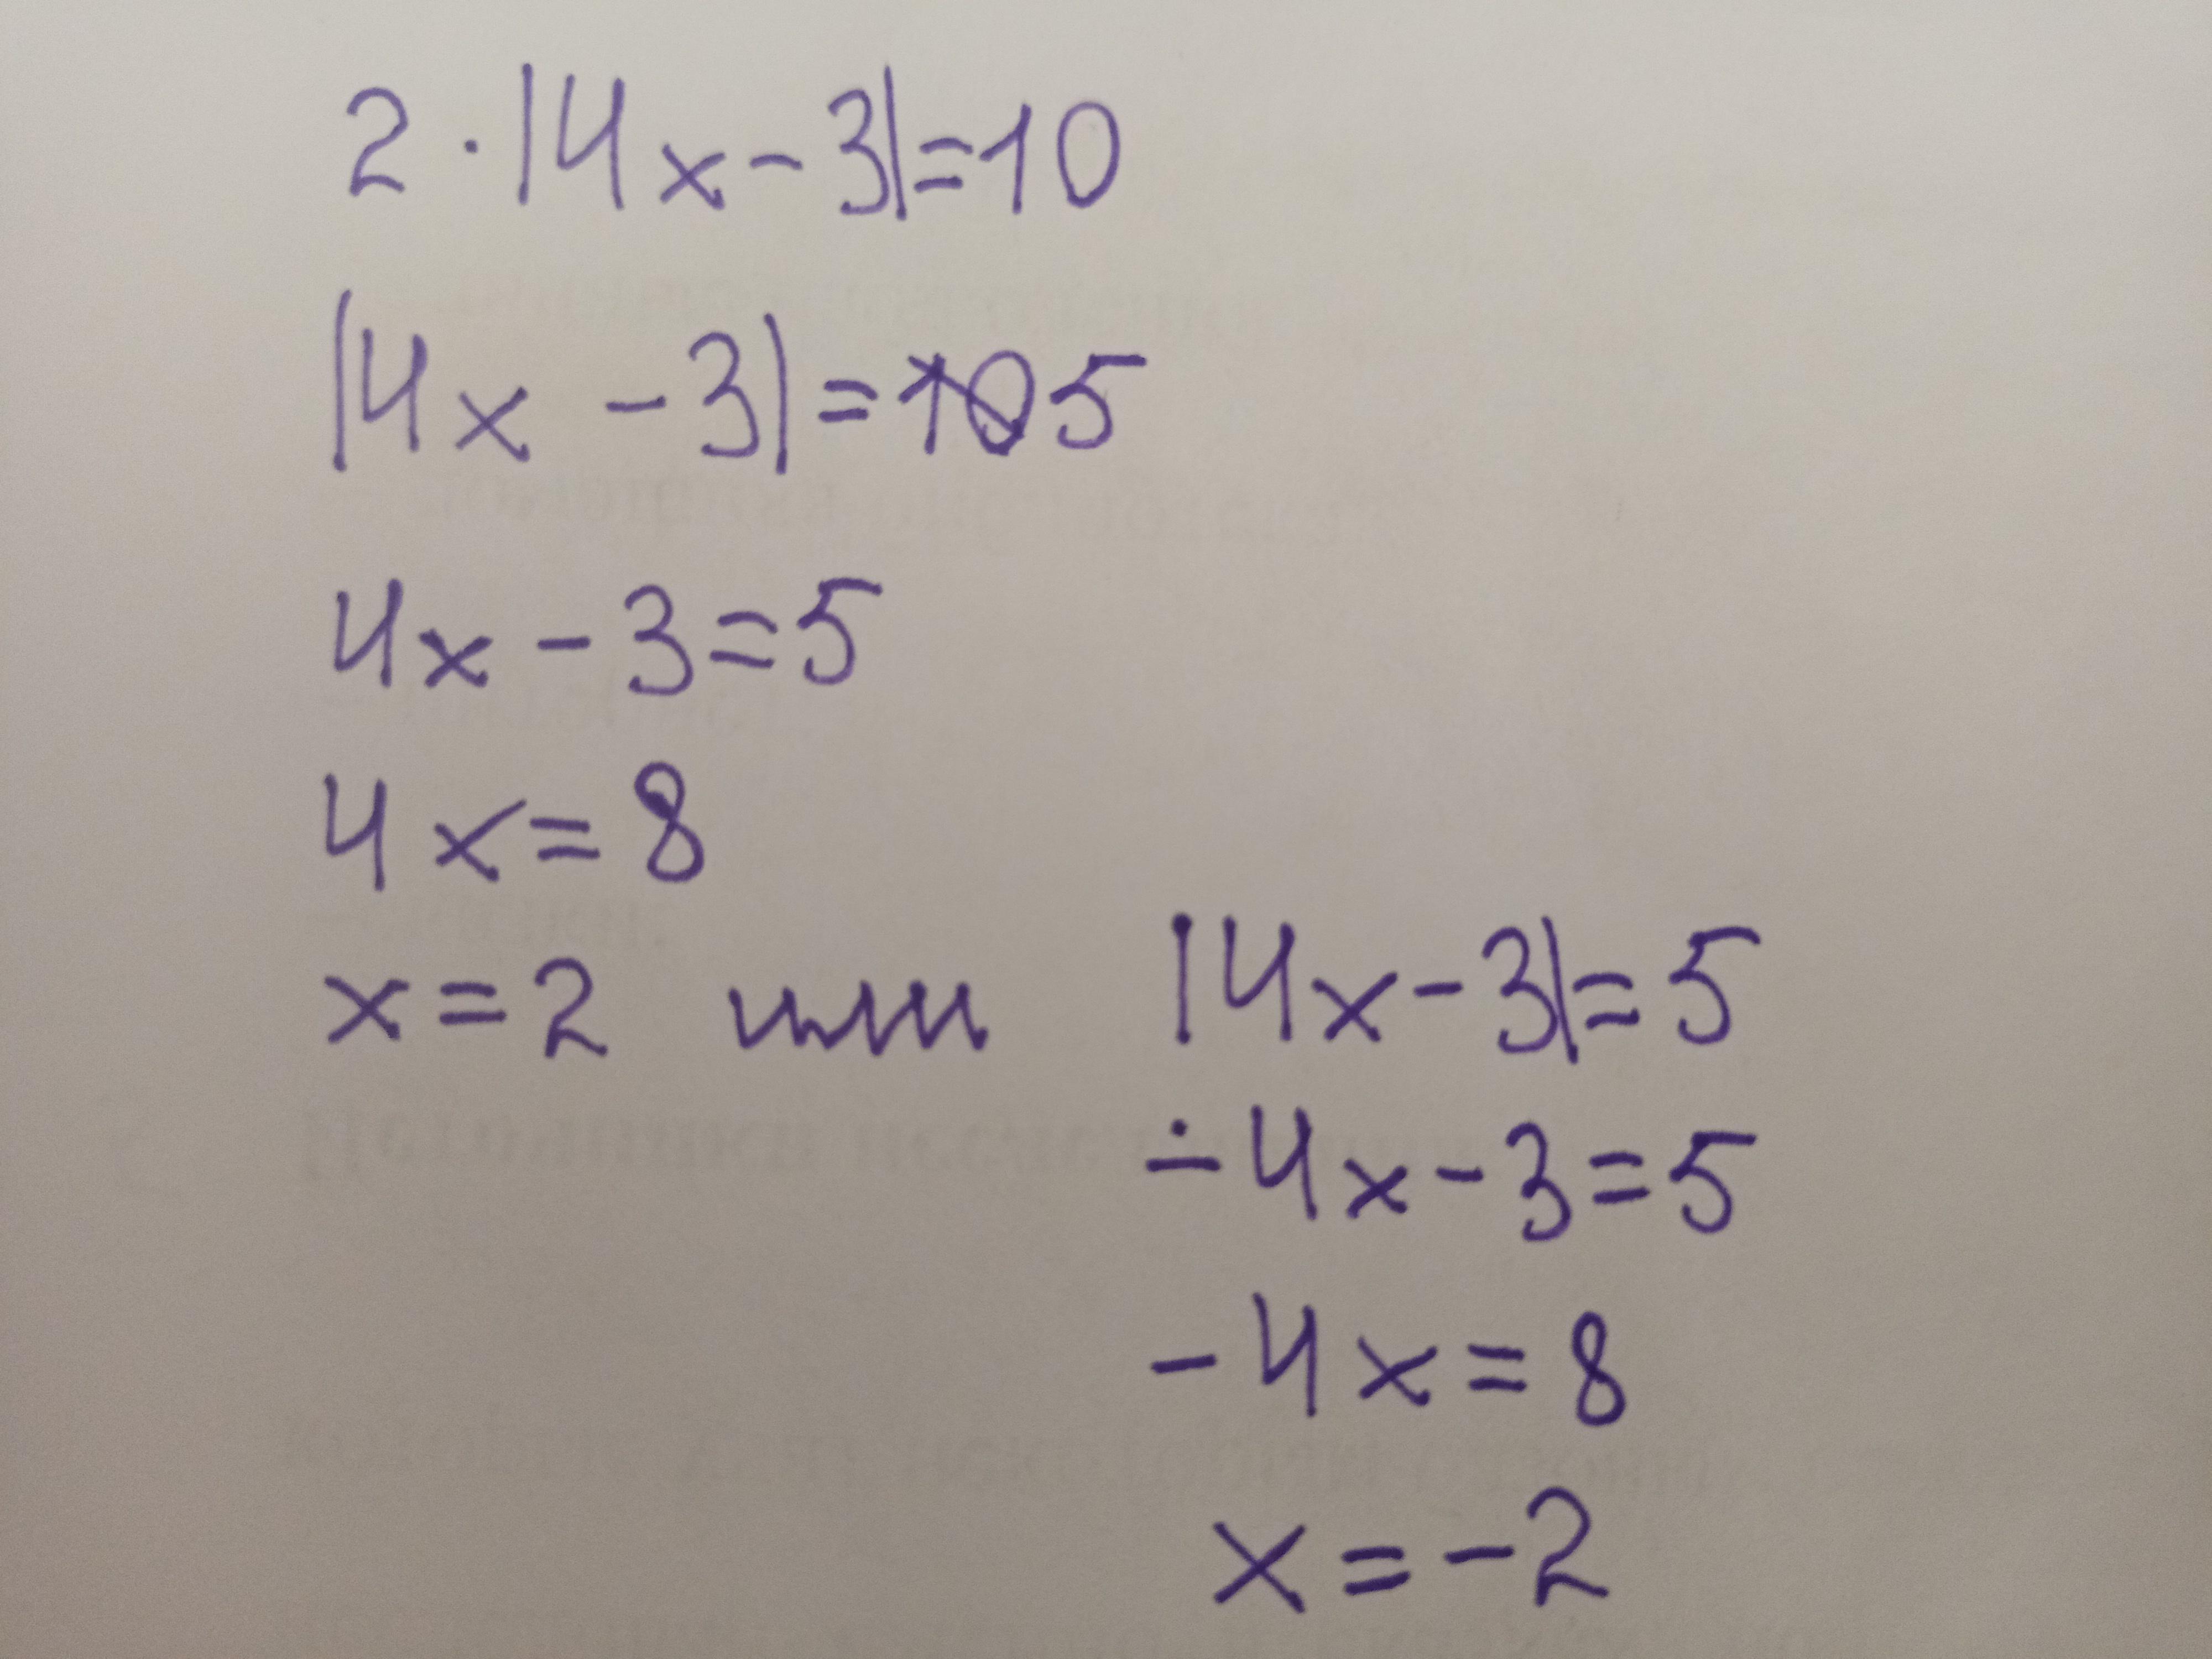 2 · |4x - 3| = 10
|4x - 3| = 5
4x - 3 = 5
4x = 8
x = 2 или |4x - 3| = 5
- 4x - 3 = 5
- 4x = 8
x = -2